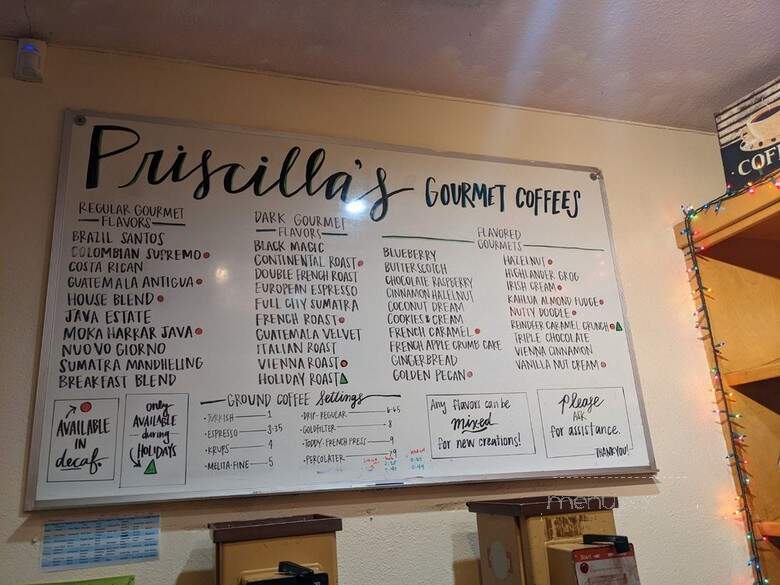 Priscilla's GOURMET COFFEES
REGULAR GOURMET
FLAVORS
BRAZIL SANTOS
COLOMBIAN SUPREMO
COSTA RICAN
GUATEMALA ANTIGUA
HOUSE BLEND
JAVA ESTATE
MOKA HARKAR JAVA
NUOVO GIORNO
SUMATRA MANDHELING
BREAKFAST BLEND
DARK GOURMET
FLAVORS
BLACK MAGIC
CONTINENTAL ROAST
DOUBLE FRENCH ROAST
EUROPEAN ESPRESSO
FULL CITY SUMATRA
FRENCH ROAST
GUATEMALA VELVET
ITALIAN ROAST
VIENNA ROAST
HOLIDAY ROAST
FLAVORED
GOURMETS
BLUEBERRY
BUTTERSCOTCH
CHOCOLATE RASPBERRY
CINNAMON HAZELNUT
COCONUT DREAM
COOKIES & CREAM
FRENCH CARAMEL
FRENCH APPLE CRUMB CAKE
GINGERBREAD
GOLDEN PECAN
HAZELNUT
HIGHLANDER GROG
IRISH CREAM
KAHLUA ALMOND FUDGE
NUTTY DOODLE
REINDEER CARAMEL CRUNCH
TRIPLE CHOCOLATE
VIENNA CINNAMON
VANILLA NUT CREAM
AVAILABLE
IN
decaf.
Only
AVAILABLE
during
HOLIDAYS
GROUND COFFEE Settings
•TURKISH 1
•ESPRESSO 3.25
•KRUPS 4
•MELITA-FINE 5
•DRIP-REGULAR 6.65
•GOLDFILTER 8
•TODDY-FRENCH PRESS 9
•PERCOLATER
Any flavors can be
mixed
for new creations!
Please
ASK
for assistance.
THANK YOU!
COF
menu